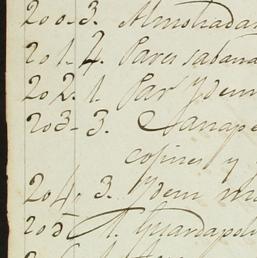 200. 3. Almohadas
201. 4. Pares sabana
202. 1. Par Ydem
203. 3. Canape
cojines y
204. 3. Ydem
205 1. Guardapol